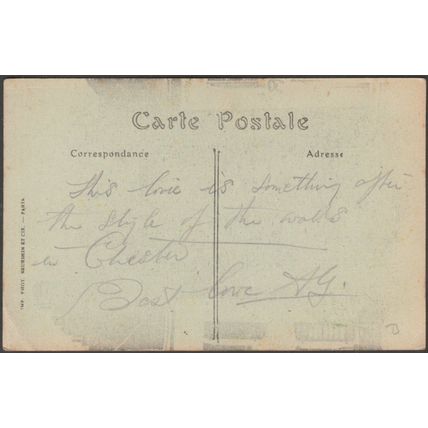 Carte Postale
Correspondance
Adresse
This is something after
the style of the walls
in Chester
Best love AG.
IMP. PHOT. NEURDEIN ET CIE. — PARIS